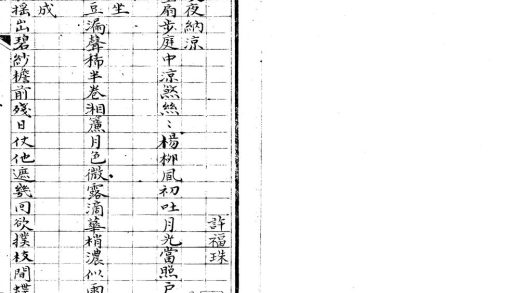 許福珠
夜納涼
扇步庭中涼煞絲〻楊柳風初吐月光當照戶
坐
豆漏聲稀半卷湘簾月色微露滴華梢濃似雨
成
搖出碧紗檐前殘日仗他遮幾回欲撲枝間蝶